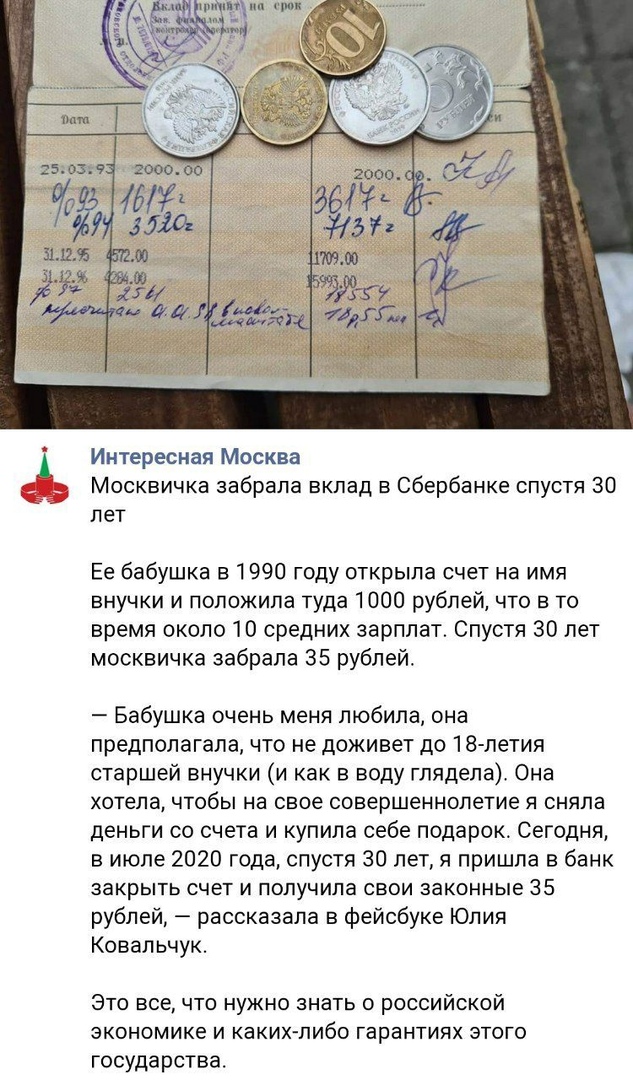 Вклад принят на срок
Зав. филиалом
(контролер-оператор)
Дата
25.03.93 2000.00 2000.00.
%93 1617= 3617=
%94 3520= 7137=
31.12.95 4572.00 11709.00
31.12.96 4284.00 15993.00
% 97 2561 18554
пересчитано 01.01.98 в новом масштабе 18р55коп
10
РУБЛЕЙ
БАНК РОССИИ
Интересная Москва
Москвичка забрала вклад в Сбербанке спустя 30
лет
Ее бабушка в 1990 году открыла счет на имя
внучки и положила туда 1000 рублей, что в то
время около 10 средних зарплат. Спустя 30 лет
москвичка забрала 35 рублей.
— Бабушка очень меня любила, она
предполагала, что не доживет до 18-летия
старшей внучки (и как в воду глядела). Она
хотела, чтобы на свое совершеннолетие я сняла
деньги со счета и купила себе подарок. Сегодня,
в июле 2020 года, спустя 30 лет, я пришла в банк
закрыть счет и получила свои законные 35
рублей, — рассказала в фейсбуке Юлия
Ковальчук.
Это все, что нужно знать о российской
экономике и каких-либо гарантиях этого
государства.